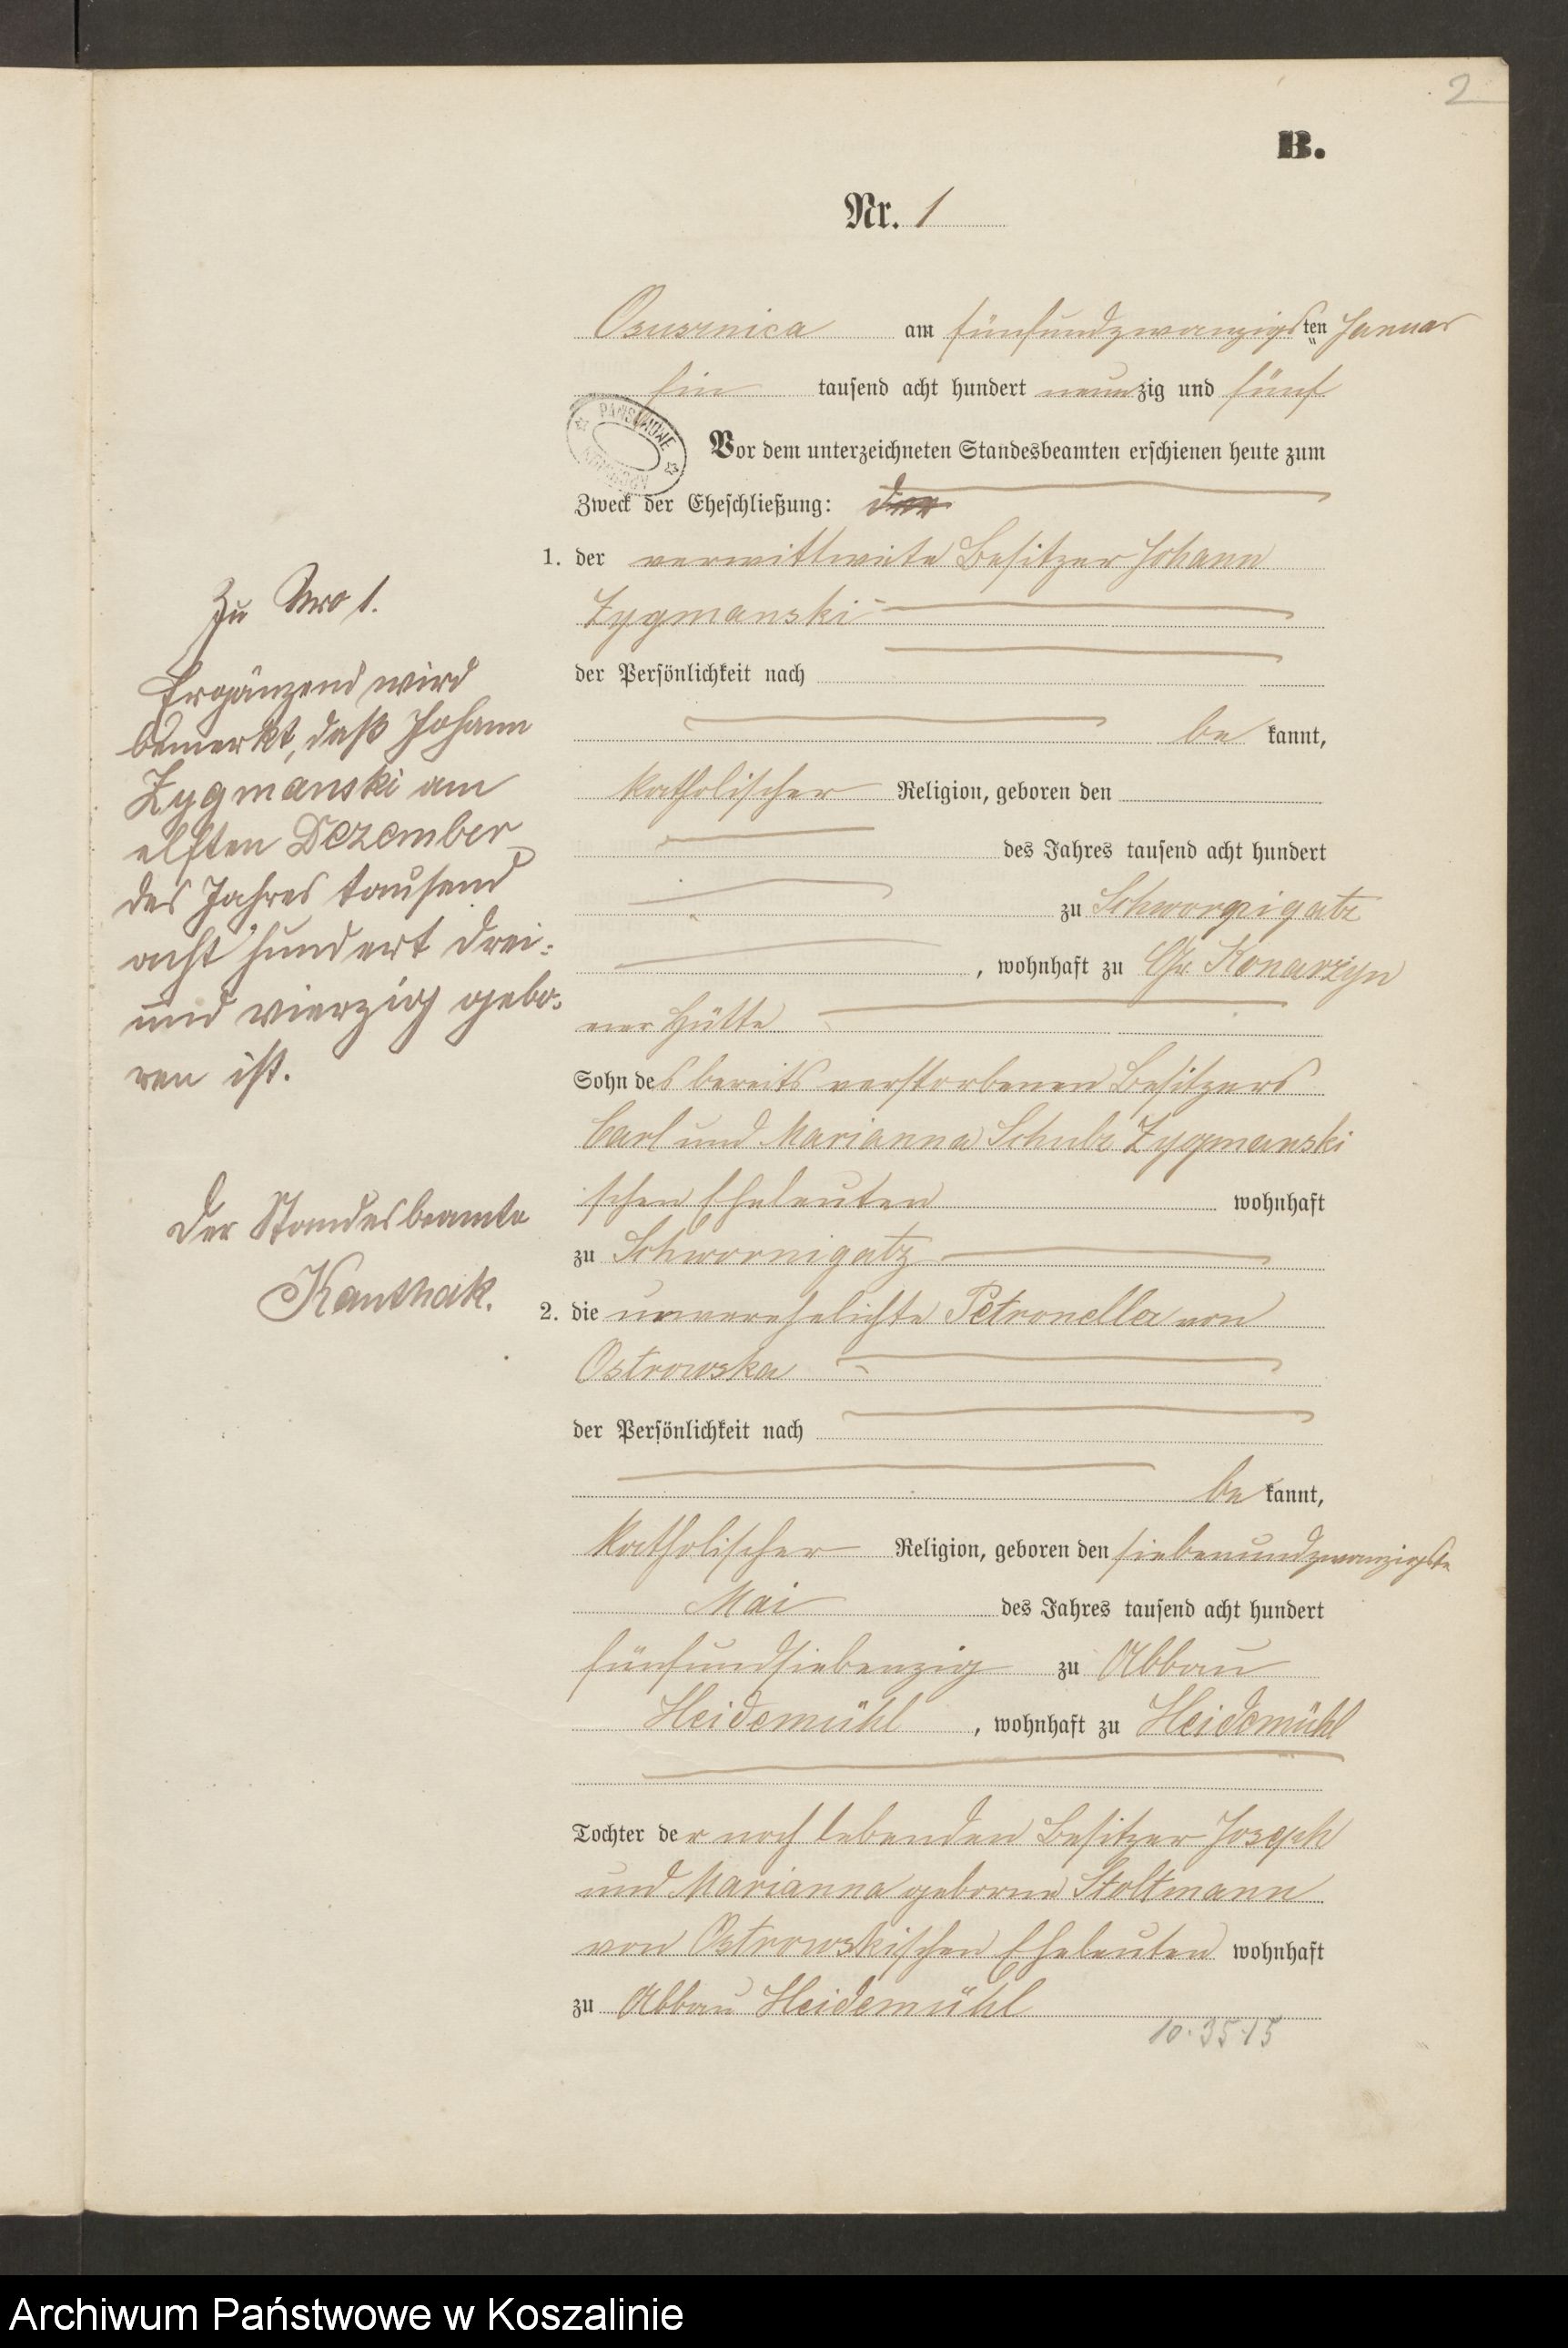 2
B.
Nr. 1
Osusznica am fünfundzwanzigsten Januar
ein tausend acht hundert neunzig und fünf
Vor dem unterzeichneten Standesbeamten erschienen heute zum
Zweck der Eheschließung:
1. der verwittwete Besitzer Johann
Zygmanski
der Persönlichkeit nach
be kannt,
katholischer Religion, geboren den
des Jahres tausend acht hundert
zu
, wohnhaft zu Gr. Konarzyn
ner Hütte
Sohn des bereits verstorbenen Besitzers
Carl und Marianna Schulz Zygmanski
schen Eheleuten wohnhaft
zu Schwornigatz
2. die unverehelichte Petronella von
Ostrowska
der Persönlichkeit nach
be kannt,
katholischer Religion, geboren den siebenundzwanzigste
Mai des Jahres tausend acht hundert
fünfundsiebenzig zu Abbau
Heidemühl, wohnhaft zu Heidemühl
Tochter der noch lebenden Besitzer Joseph
und Marianna geborne Stoltmann
von Ostrowskischen Eheleuten wohnhaft
zu Abbau Heidemühl
10.3515
Zu Nro 1.
Ergänzend wird
bemerkt, daß Johann
Zygmanski am
elften Dezember
des Jahres tausend
acht hundert drei=
und vierzig gebo=
ren ist.
Der Standesbeamte
Kanthak.
PAŃSTWOWE
Archiwum Państwowe w Koszalinie